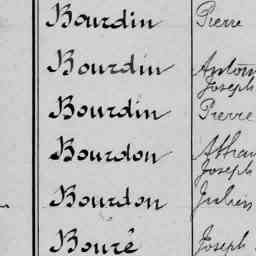 Bourdin Pierre
Bourdin Antoin
Joseph
Bourdin Pierre
Bourdon
Joseph
Bourdon Julien
Bouré Joseph